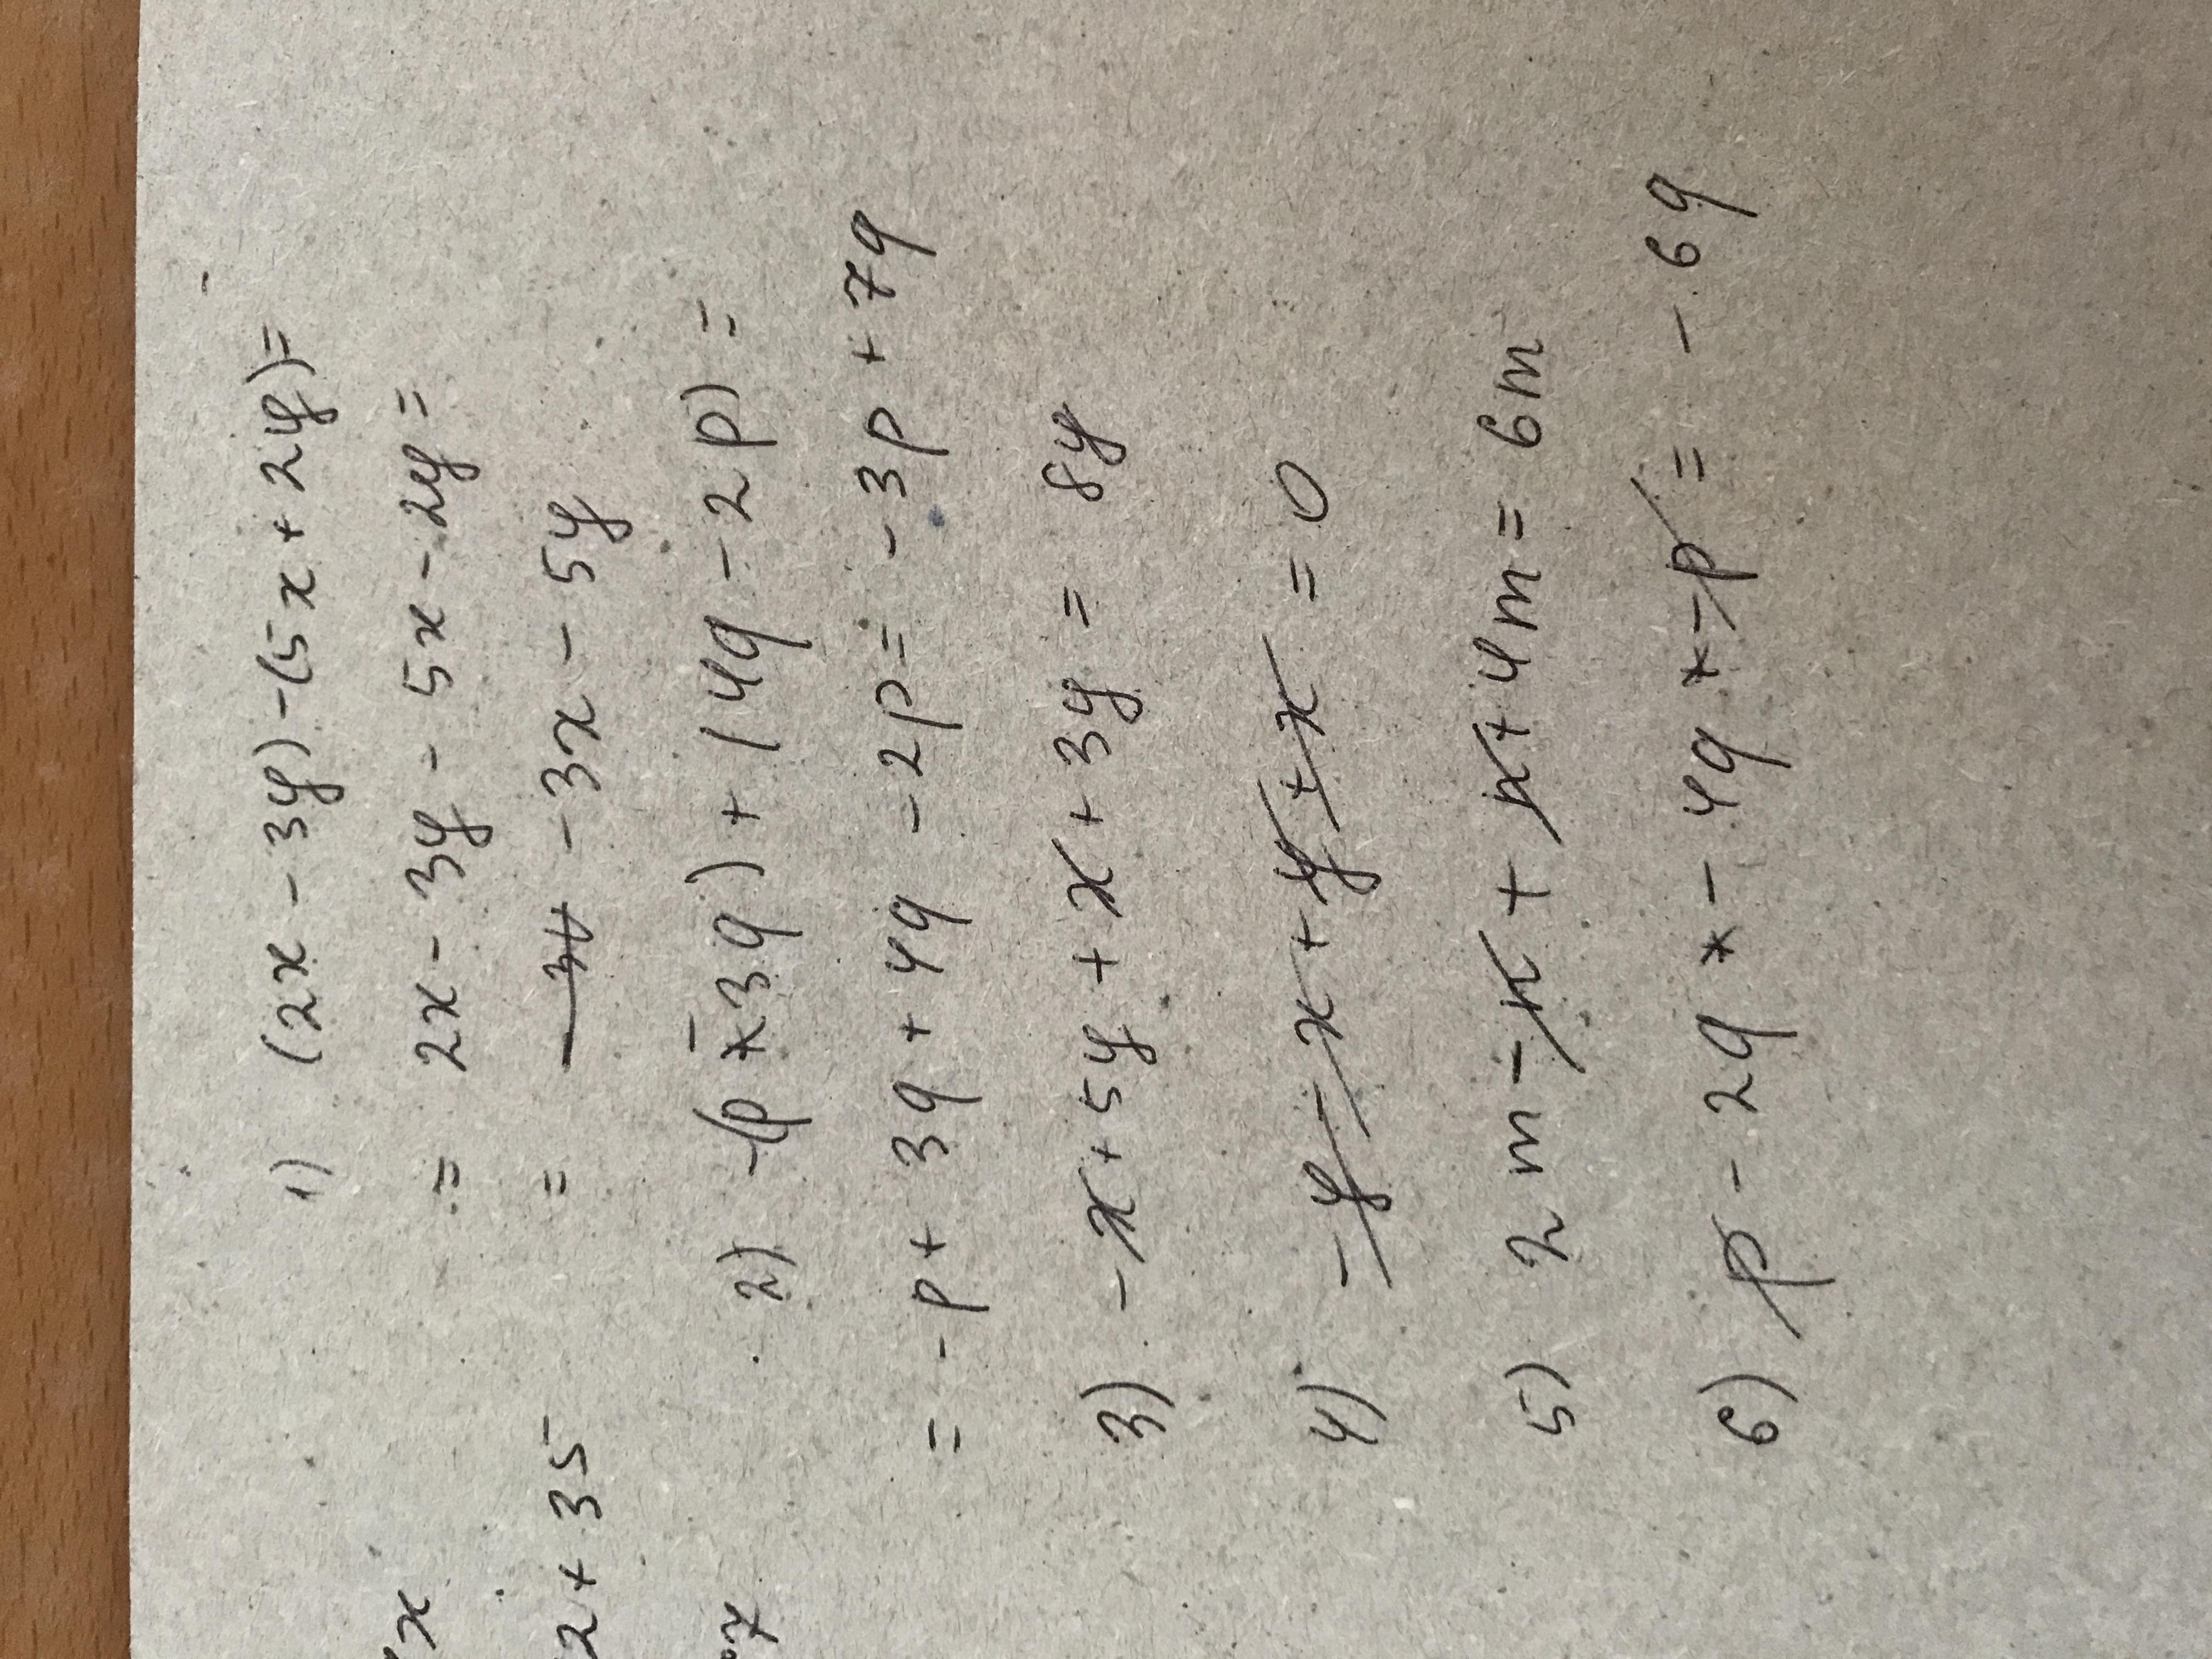 1) (2x - 3y) - (5x + 2y) =
= 2x - 3y - 5x - 2y =
= - 3x - 5y
2) -(p - 3q) + (4q - 2p) =
= -p + 3q + 4q - 2p = -3p + 7q
3) -x + 5y + x + 3y = 8y
4) -y - x + y + x = 0
5) 2m - n + n + 4m = 6m
6) p - 2q - 4q - p = - 6q
x
2 + 35